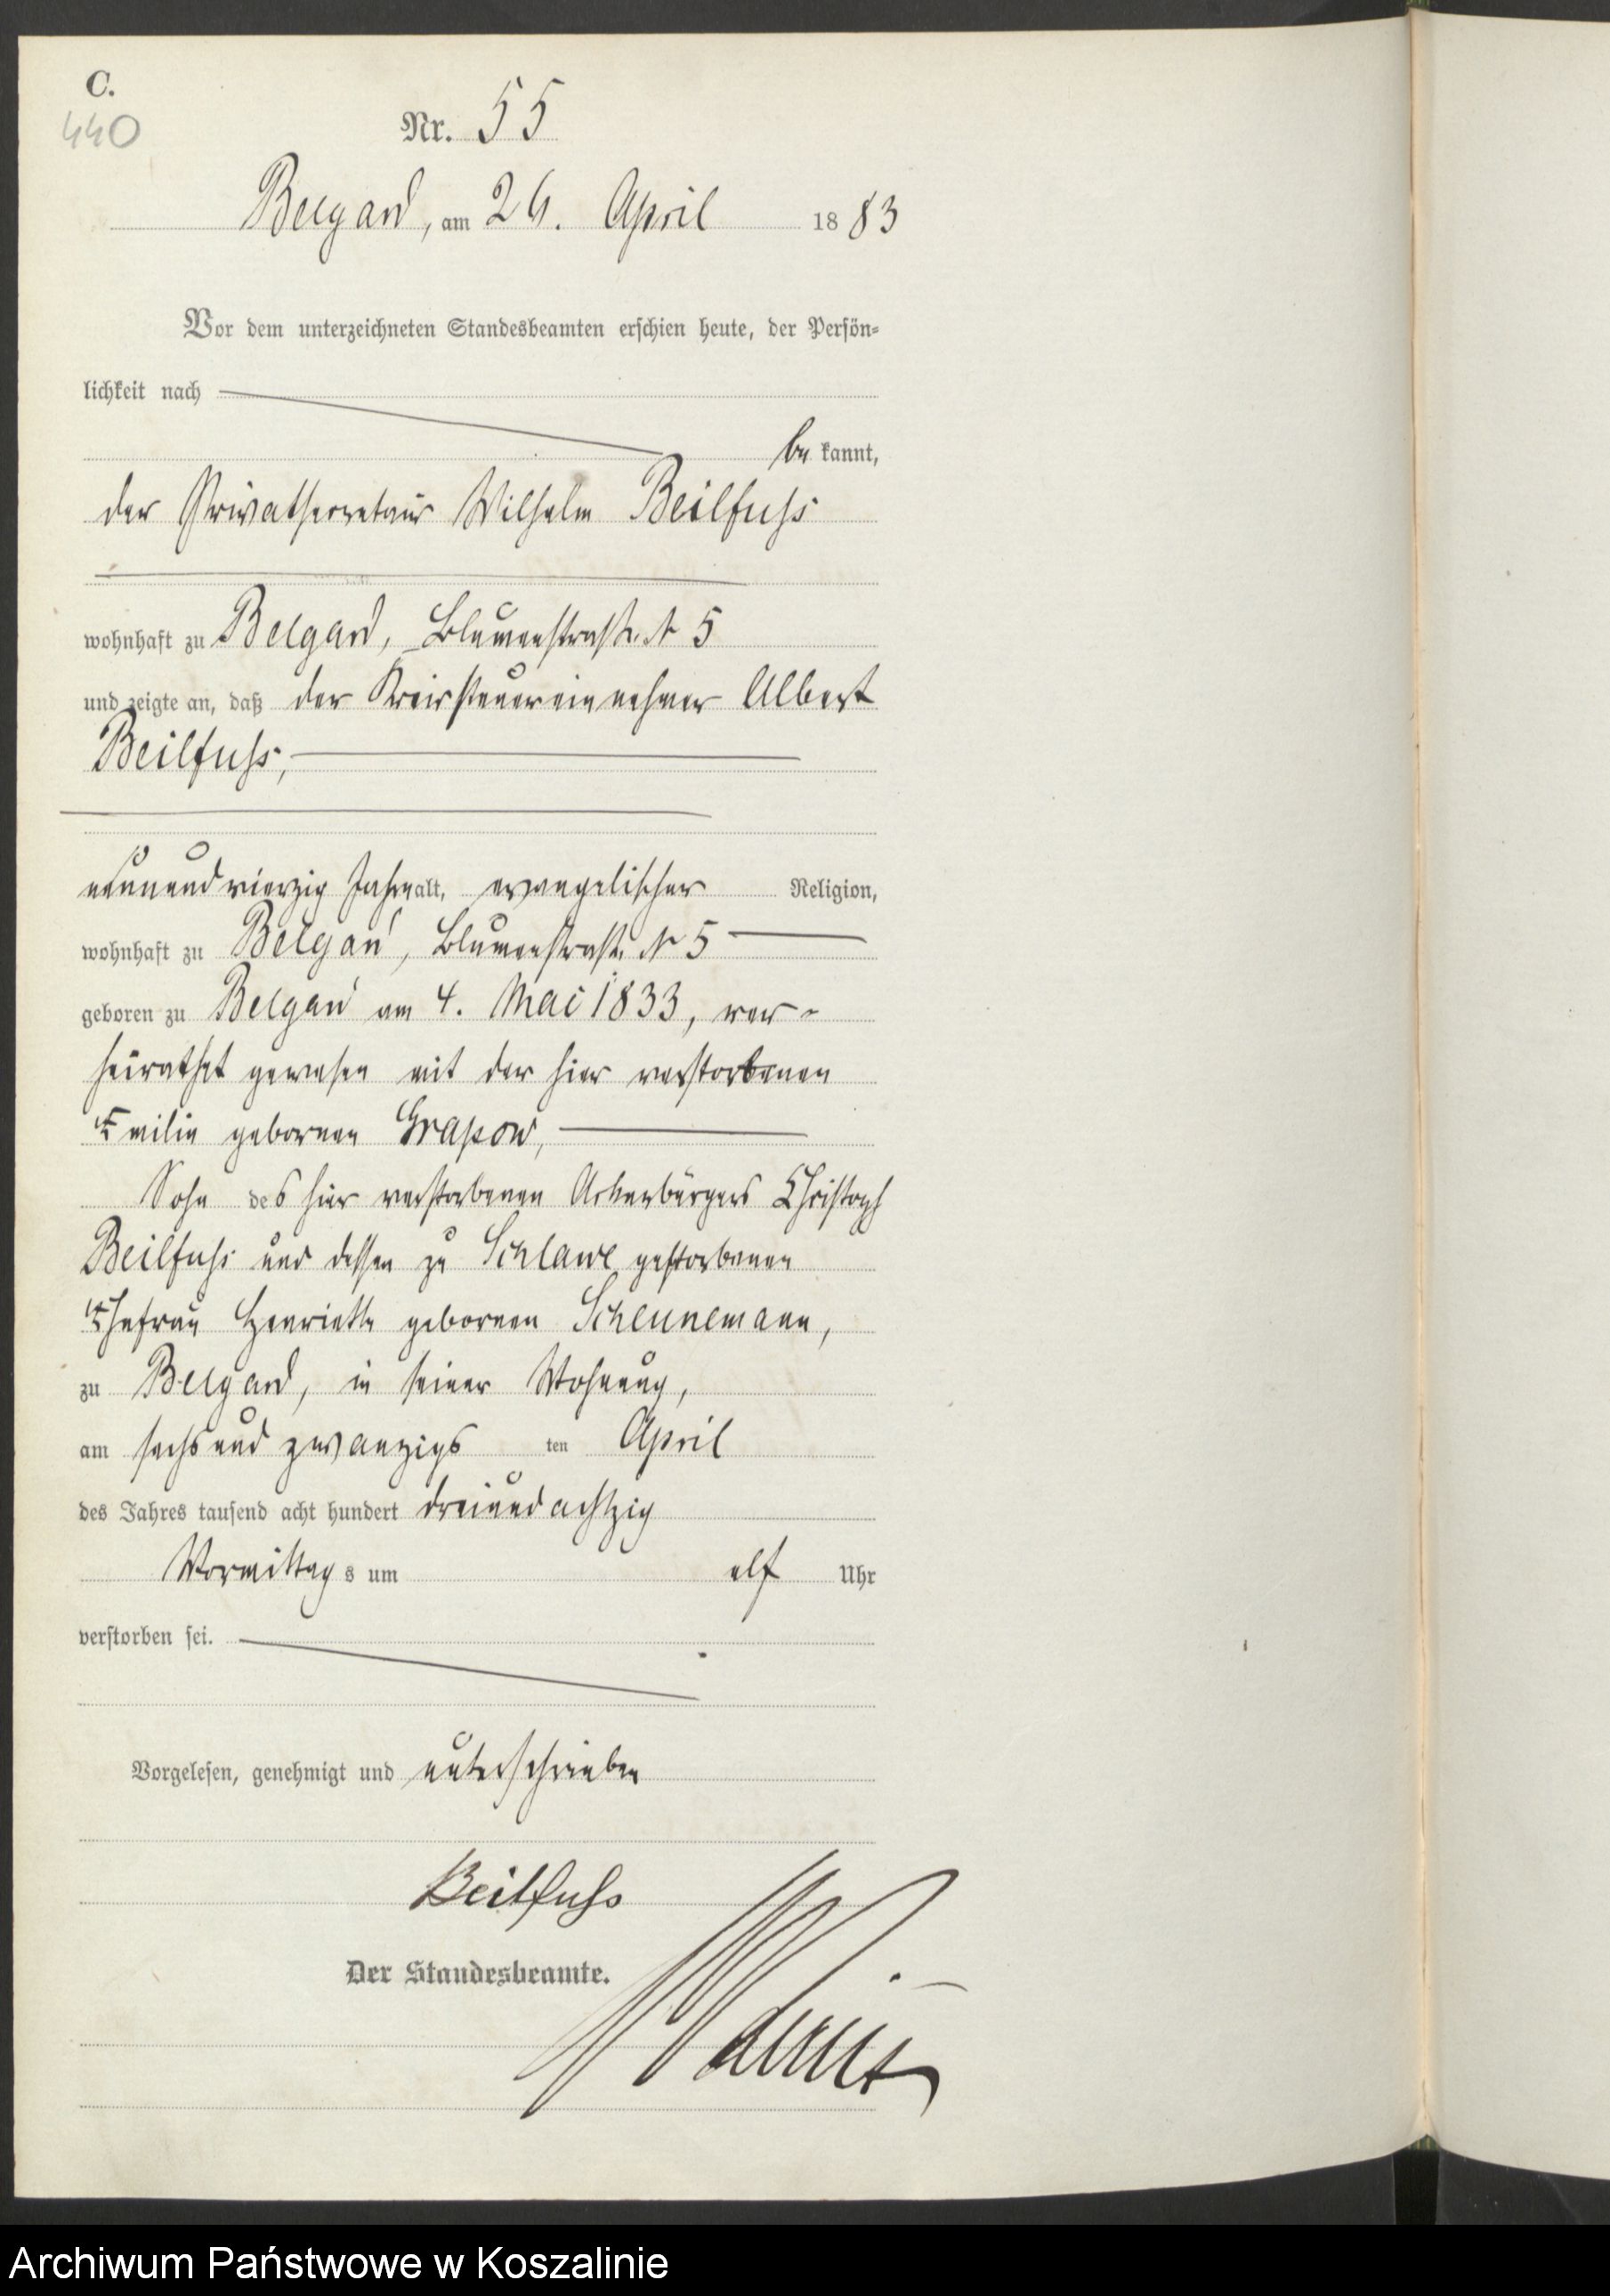 C.
440
Nr. 55
Belgard, am 26. April 1883
Vor dem unterzeichneten Standesbeamten erschien heute, der Persön-
lichkeit nach
be kannt,
der Privatsecretair Wilhelm Beilfuss
wohnhaft zu Belgard, Blumenstraße N 5
und zeigte an, daß der Kreissteuereinnehmer Albert
Beilfuss,
neunundvierzig Jahre alt, evangelischer Religion,
wohnhaft zu Belgard, Blumenstraße N 5
geboren zu Belgard am 4. Mai 1833, ver-
heirathet gewesen mit der hier verstorbenen
Emilie geborenen Grapow,
Sohn des hier verstorbenen Ackerbürgers Christoph
Beilfuss und dessen zu Schlawe gestorbenen
Ehefrau Henriette geborenen Scheunemann,
zu Belgard, in seiner Wohnung,
am sechsund zwanzigs ten April
des Jahres tausend acht hundert dreiundachtzig
Vormittag s um elf Uhr
verstorben sei.
Vorgelesen, genehmigt und unterschrieben
Beilfuss
Der Standesbeamte.
Archiwum Państwowe w Koszalinie